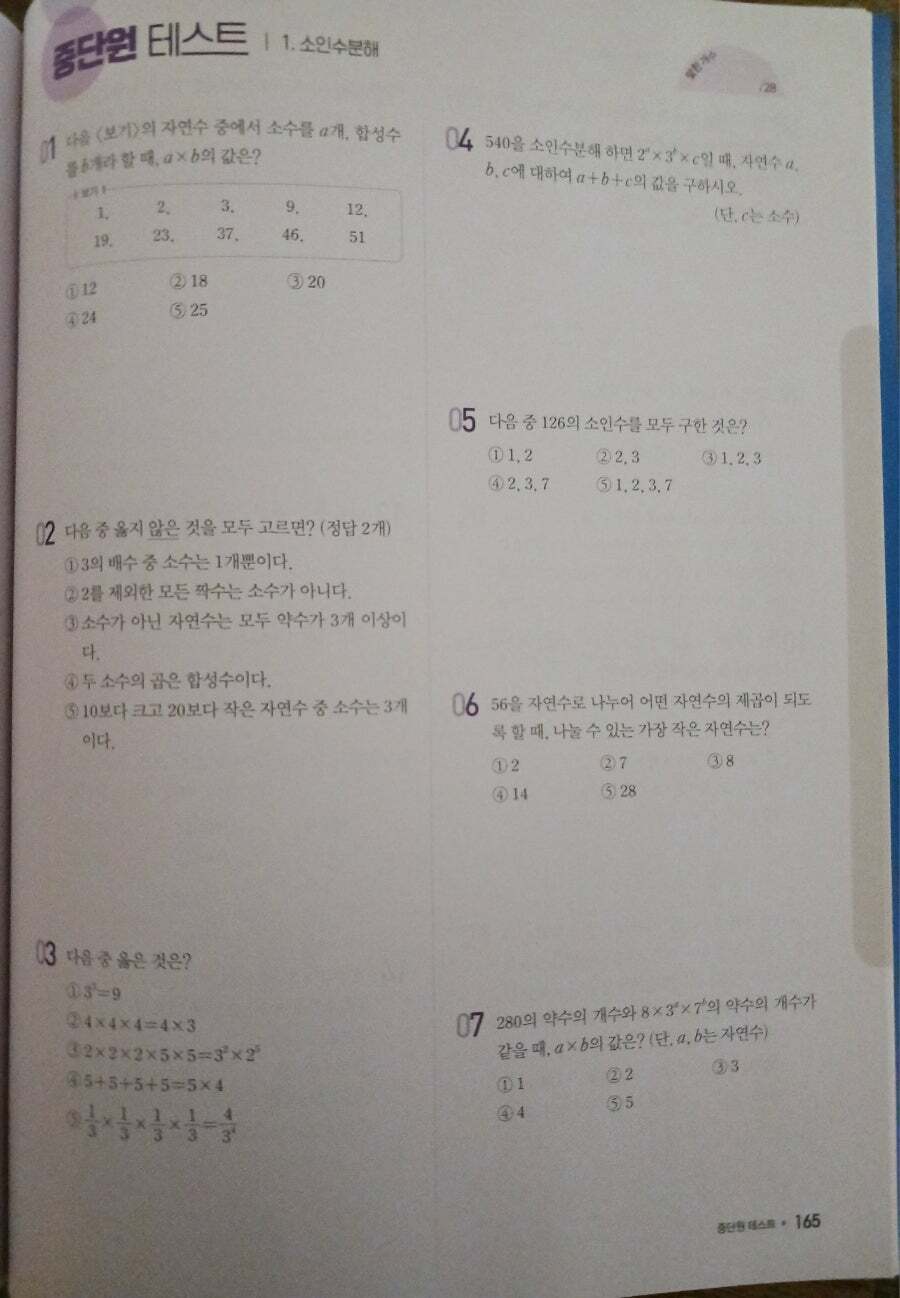 중단원 테스트 | 1. 소인수분해
맞힌 개수
/28
01 다음 〈보기〉의 자연수 중에서 소수를 a개, 합성수
를 b개라 할 때, a×b의 값은?
보기
1, 2, 3, 9, 12,
19, 23, 37, 46, 51
①12 ②18 ③20
④24 ⑤25
02 다음 중 옳지 않은 것을 모두 고르면? (정답 2개)
①3의 배수 중 소수는 1개뿐이다.
②2를 제외한 모든 짝수는 소수가 아니다.
③소수가 아닌 자연수는 모두 약수가 3개 이상이
다.
④두 소수의 곱은 합성수이다.
⑤10보다 크고 20보다 작은 자연수 중 소수는 3개
이다.
03 다음 중 옳은 것은?
①3³=9
②4×4×4=4×3
③2×2×2×5×5=3²×2⁵
④5+5+5+5=5×4
⑤1/3×1/3×1/3×1/3=4/3⁴
04 540을 소인수분해 하면 2ᵃ×3ᵇ×c일 때, 자연수 a,
b, c에 대하여 a+b+c의 값을 구하시오.
(단, c는 소수)
05 다음 중 126의 소인수를 모두 구한 것은?
①1, 2 ②2, 3 ③1, 2, 3
④2, 3, 7 ⑤1, 2, 3, 7
06 56을 자연수로 나누어 어떤 자연수의 제곱이 되도
록 할 때, 나눌 수 있는 가장 작은 자연수는?
①2 ②7 ③8
④14 ⑤28
07 280의 약수의 개수와 8×3ᵃ×7ᵇ의 약수의 개수가
같을 때, a×b의 값은? (단, a, b는 자연수)
①1 ②2 ③3
④4 ⑤5
중단원 테스트 • 165